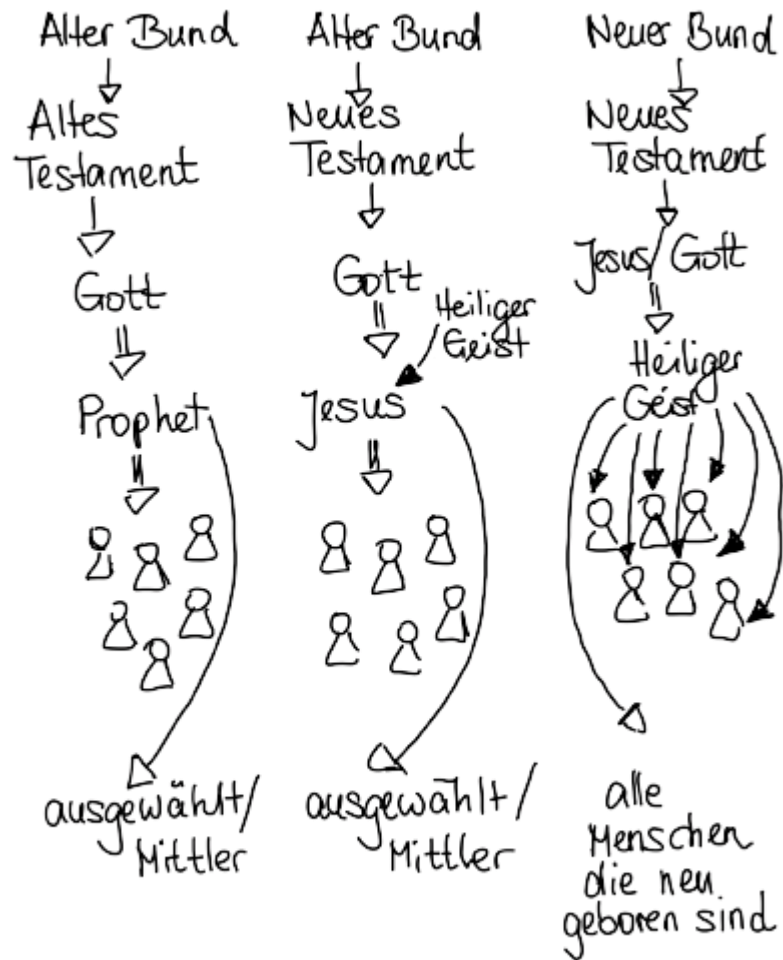 Alter Bund
Altes
Testament
Gott
Prophet
ausgewählt/
Mittler
Alter Bund
Neues
Testament
Gott
Heiliger
Geist
Jesus
ausgewählt/
Mittler
Neuer Bund
Neues
Testament
Jesus/Gott
Heiliger
Geist
alle
Menschen
die neu
geboren sind